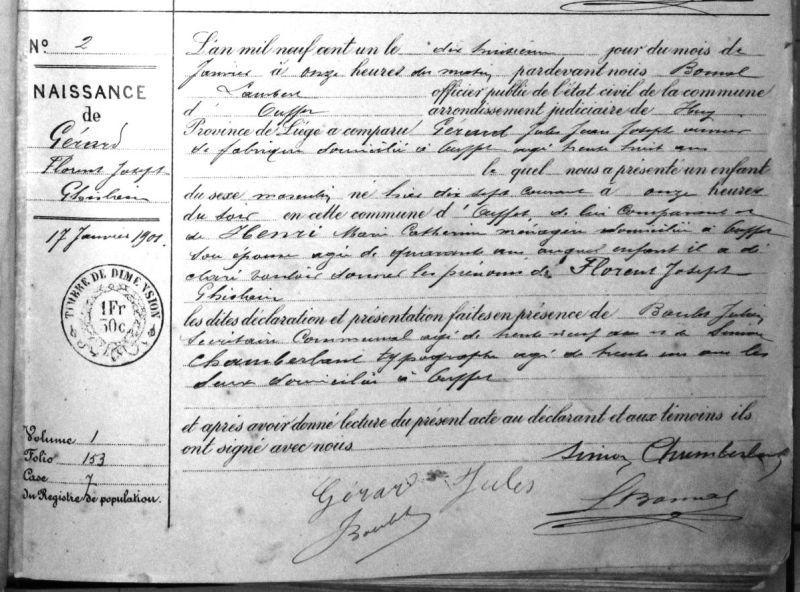 N° 2
NAISSANCE
de
Gérard
Florent Joseph
Ghislain
17 Janvier 1901.
TIMBRE DE DIMENSION
1 Fr
30c
Volume 1
Folio 153
Case 7
du Registre de population.
L'an mil neuf cent un le dix huitième jour du mois de
Janvier à onze heures du matin pardevant nous Bonmal
Lambert officier public de l'état civil de la commune
d' Ouffet arrondissement judiciaire de Huy
Province de Liége a comparu Gérard Jules Jean Joseph
de fabrique domicilié à Ouffet agé trente huit ans
le quel nous a présenté un enfant
du sexe masculin né hier dix sept courant à onze heures
du soir en cette commune d' Ouffet, de lui Comparant et
de Henri Marie Catherine ménagère domiciliée à Ouffet
son épouse agée de quarante ans auquel enfant il a dé
claré vouloir donner les prénoms de Florent Joseph
Ghislain
les dites déclaration et présentation faites en présence de Boulet Julien
Secrétaire Communal agé de trente neuf ans et de Simon
Chamberlant typographe agé de trente un ans les
deux domiciliés à Ouffet
et après avoir donné lecture du présent acte au déclarant et aux témoins ils
ont signé avec nous
Simon Chamberlant
Gérard Jules
LBonmal
Boulet